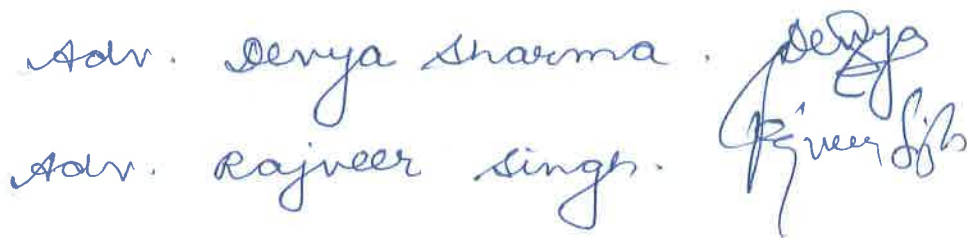 Adv. Devya Sharma. Devya
Adv. Rajveer Singh. Rajveer Singh